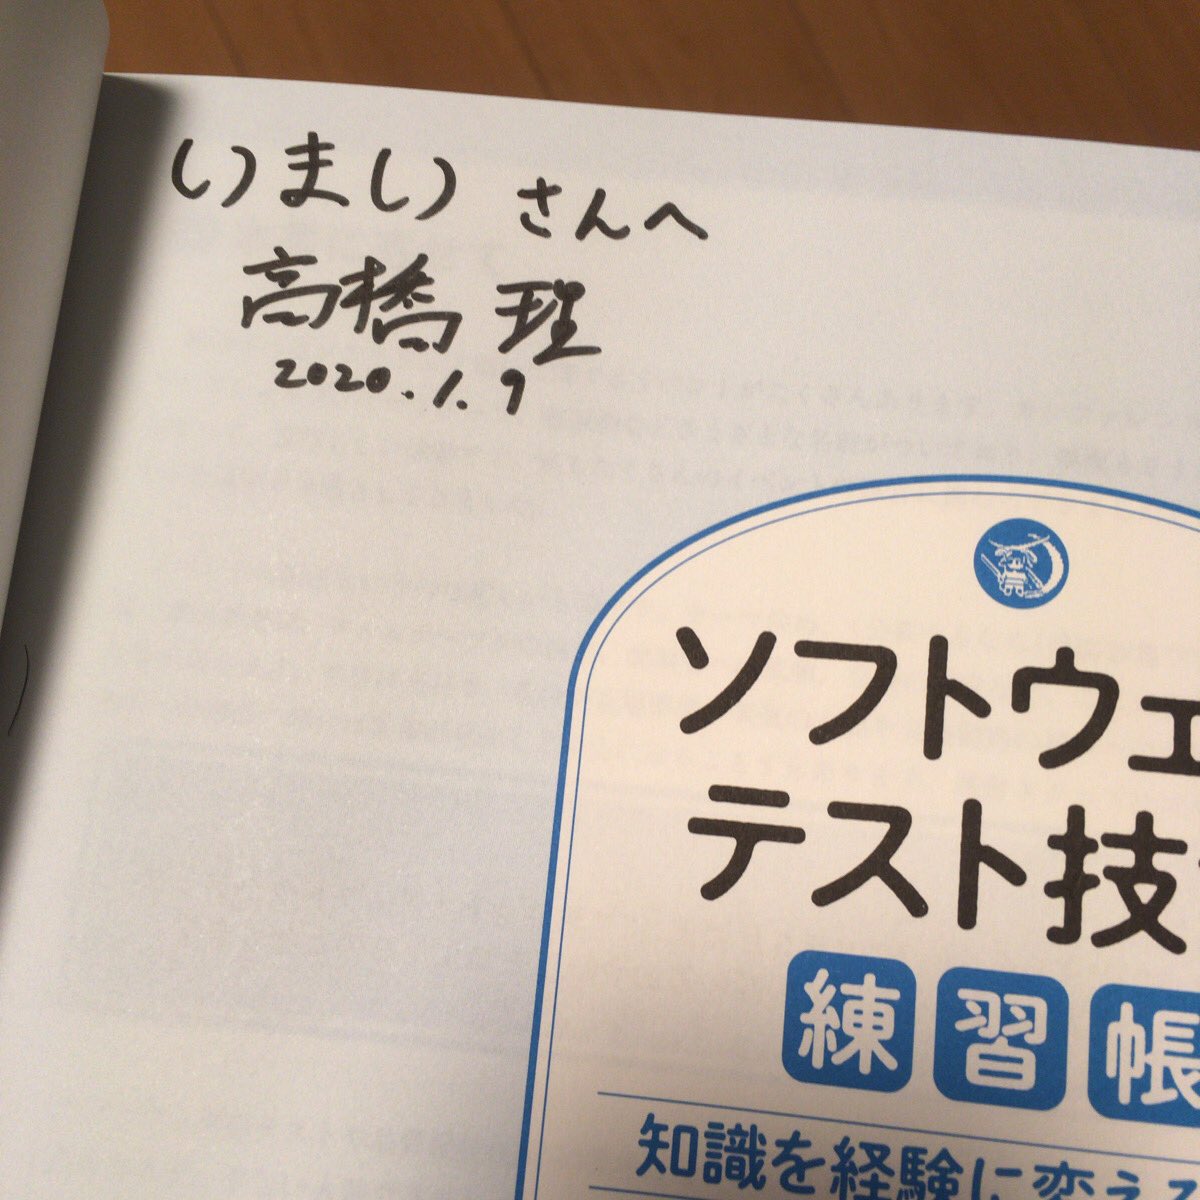 いまい さんへ
高橋 理
2020.1.9
ソフトウェ
テスト技
練習帳
知識を経験に変える